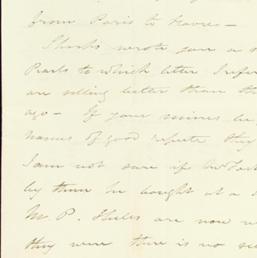 from Paris to Havre —
wrote you a
Pearls to which letter I refer
are selling better than th
ago — If your
names of good repute they
I am not sure if
by them be bought at a
M. P. are now
they were there is no